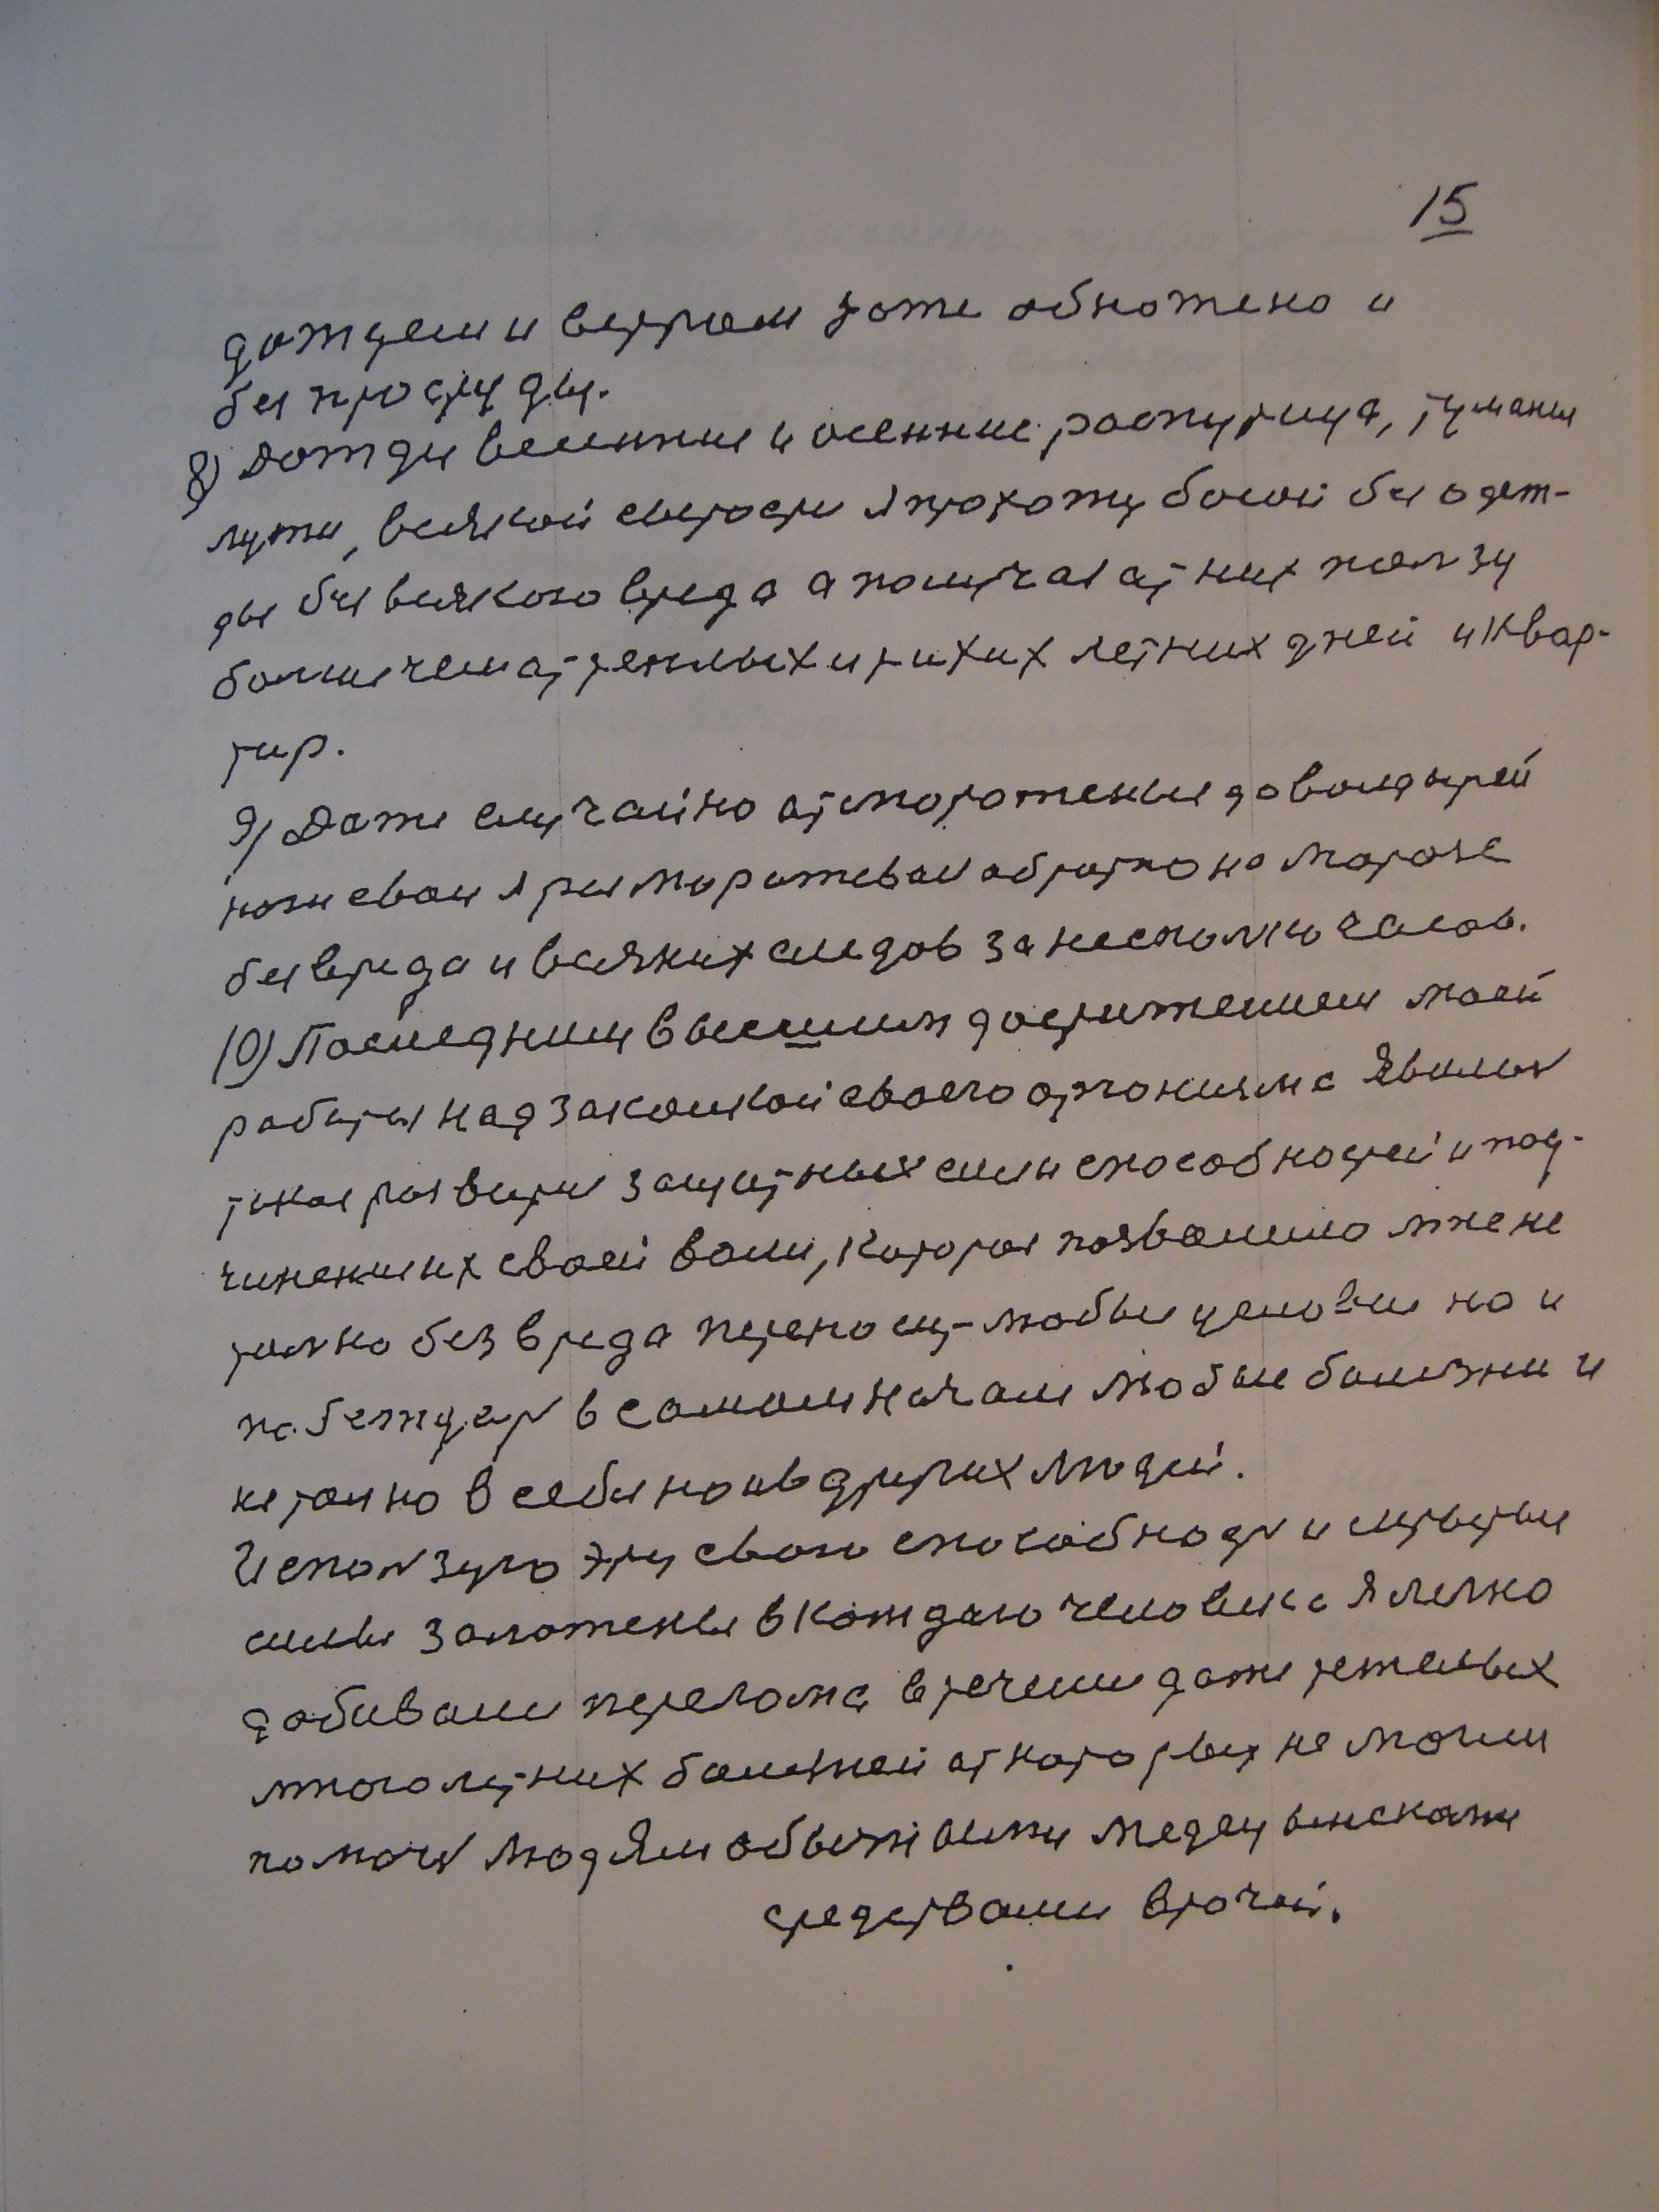 15
дождем и ветром тоже обножено и
без простуды.
8) Дожди весинние и осенние распутица, туманы
лужи, всякой сырости я прохожу босой без одеж-
ды без всякого вреда а получая от них ползу
болше чем от теплых и тихих летних дней и квар-
тир.
9) Даже случайно отмороженые до волдырей
ноги свои я размораживал обратно на морозе
без вреда и всяких следов за несколко часов.
10) Последним высшим достижением моей
работы над закалкой своего организма явилося
такое развитие защитных сил и способностей и под-
чинение их своей воли, которое позволило мне не
толко без вреда переносить любые условие но и
побеждать в самом начале любые болезни и
не толко в себе но и в других людей.
Исползуя эту свою способность и скрытые
силы заложеные в каждого человека я легко
добивался перелома в течении даже тяжелых
многолетних болезней от которых не могли
помочь людям обычними медецынскими
средствами врачей.